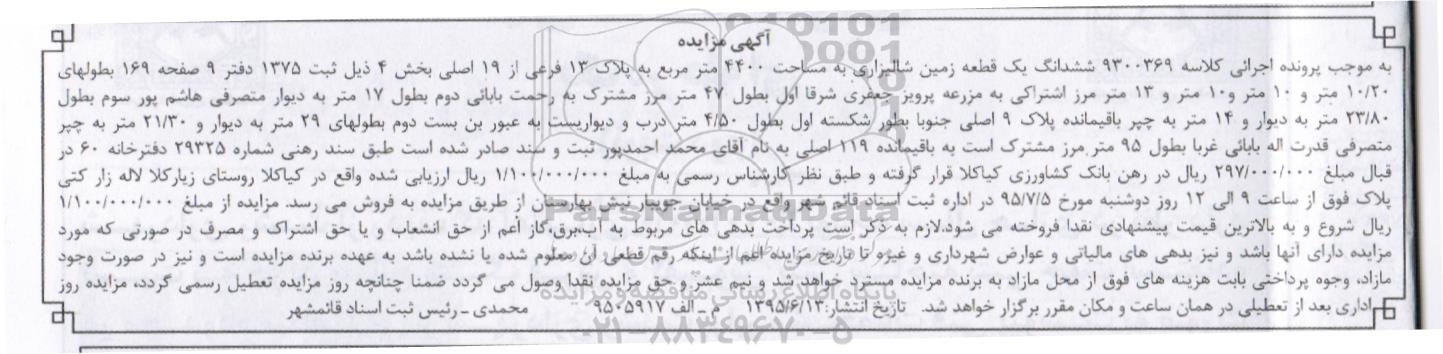 آگهی مزایده
به موجب پرونده اجرائی کلاسه ۹۳۰۰۳۶۹ ششدانگ یک قطعه زمین شالیزاری به مساحت ۴۴۰۰ متر مربع به پلاک ۱۳ فرعی از ۱۹ اصلی بخش ۴ ذیل ثبت ۱۳۷۵ دفتر ۹ صفحه ۱۶۹ بطولهای
۱۰/۲۰ متر و ۱۰ متر و ۱۰ متر و ۱۳ متر مرز اشتراکی به مزرعه پرویز جعفری شرقا اول بطول ۴۷ متر مرز مشترک به رحمت بابائی دوم بطول ۱۷ متر به دیوار متصرفی هاشم پور سوم بطول
۲۳/۸۰ متر به دیوار و ۱۴ متر به چپر باقیمانده پلاک ۹ اصلی جنوبا بطور شکسته اول بطول ۴/۵۰ متر درب و دیواریست به عبور بن بست دوم بطولهای ۲۹ متر به دیوار و ۲۱/۳۰ متر به چپر
متصرفی قدرت اله بابائی غربا بطول ۹۵ متر مرز مشترک است به باقیمانده ۱۱۹ اصلی به نام آقای محمد احمدپور ثبت و سند صادر شده است طبق سند رهنی شماره ۲۹۳۲۵ دفترخانه ۶۰ در
قبال مبلغ ۲۹۷/۰۰۰/۰۰۰ ریال در رهن بانک کشاورزی کیاکلا قرار گرفته و طبق نظر کارشناس رسمی به مبلغ ۱/۱۰۰/۰۰۰/۰۰۰ ریال ارزیابی شده واقع در کیاکلا روستای زیارکلا لاله زار کتی
پلاک فوق از ساعت ۹ الی ۱۲ روز دوشنبه مورخ ۹۵/۷/۵ در اداره ثبت اسناد قائم شهر واقع در خیابان جویبار نبش بهارستان از طریق مزایده به فروش می رسد. مزایده از مبلغ ۱/۱۰۰/۰۰۰/۰۰۰
ریال شروع و به بالاترین قیمت پیشنهادی نقدا فروخته می شود.لازم به ذکر است پرداخت بدهی های مربوط به آب،برق،گاز أعم از حق انشعاب و یا حق اشتراک و مصرف در صورتی که مورد
مزایده دارای آنها باشد و نیز بدهی های مالیاتی و عوارض شهرداری و غیره تا تاریخ مزایده اعم از اینکه رقم قطعی آن معلوم شده یا نشده باشد به عهده برنده مزایده است و نیز در صورت وجود
مازاد، وجوه پرداختی بابت هزینه های فوق از محل مازاد به برنده مزایده مسترد خواهد شد و نیم عشر و حق مزایده نقدا وصول می گردد ضمنا چنانچه روز مزایده تعطیل رسمی گردد، مزایده روز
اداری بعد از تعطیلی در همان ساعت و مکان مقرر برگزار خواهد شد. تاریخ انتشار: ۱۳۹۵/۶/۱۳ م ـ الف ۹۵۰۵۹۱۷ محمدی ـ رئیس ثبت اسناد قائمشهر
ParsNamadData
پایگاه اطلاع رسانی مناقصه و مزایده
۰۲۱-۸۸۳۴۹۶۷۰-۵